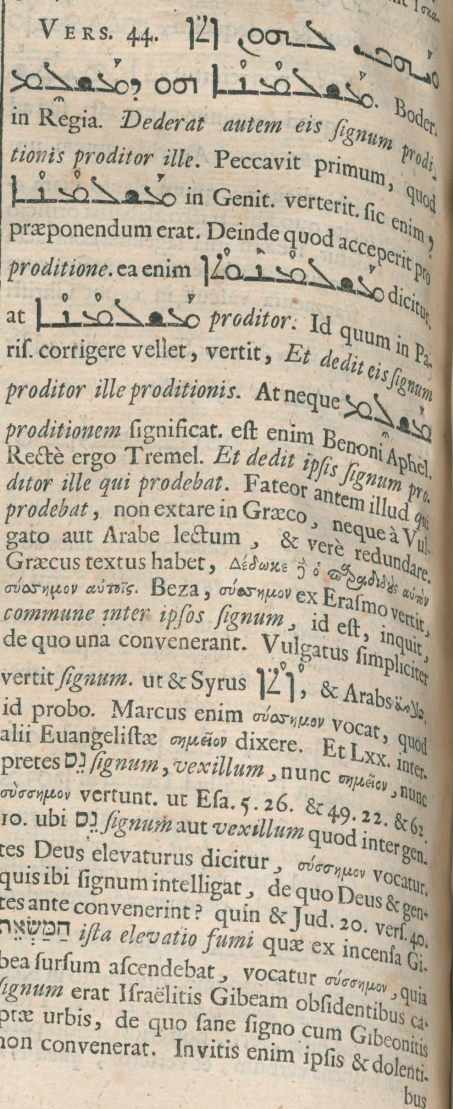 VERS. 44. ܘܝܗܒ ܠܗܘܢ ܐܬܐ
ܡܫܠܡܢܐ ܗܘ ܕܡܫܠܡ. Boder.
in Regia. Dederat autem eis signum prodi-
tionis proditor ille. Peccavit primum, quod
ܡܫܠܡܢܐ in Genit. verterit. sic enim ܕ
præponendum erat. Deinde quod acceperit pro
proditione. ea enim ܡܫܠܡܢܘܬܐ dicitur.
at ܡܫܠܡܢܐ proditor. Id quum in Pa-
ris. corrigere vellet, vertit, Et dedit eis signum
proditor ille proditionis. At neque ܡܫܠܡ
proditionem significat. est enim Benoni Aphel.
Rectè ergo Tremel. Et dedit ipsis signum pro-
ditor ille qui prodebat. Fateor antem illud qui
prodebat, non extare in Græco, neque à Vul-
gato aut Arabe lectum, & verè redundare.
Græcus textus habet, Δέδωκε ϳ ὁ παραδιδοὺς αὐτὸν
σύσσημον αὐτοῖς. Beza, σύσσημον ex Erasmo vertit,
commune inter ipsos signum, id est, inquit,
de quo una convenerant. Vulgatus simpliciter
vertit signum. ut & Syrus ܐܬܐ, & Arabs علامة,
id probo. Marcus enim σύσσημον vocat, quod
alii Euangelistæ σημεῖον dixere. Et Lxx. inter-
pretes נֵס signum, vexillum, nunc σημεῖον, nunc
σύσσημον vertunt. ut Esa. 5. 26. & 49. 22. & 62.
10. ubi נֵס signum aut vexillum quod inter gen-
tes Deus elevaturus dicitur, σύσσημον vocatur.
quis ibi signum intelligat, de quo Deus & gen-
tes ante convenerint? quin & Jud. 20. vers. 40.
הַמַּשְׂאֵת ista elevatio fumi quæ ex incensa Gi-
bea sursum ascendebat, vocatur σύσσημον, quia
signum erat Israëlitis Gibeam obsidentibus ca-
ptæ urbis, de quo sane signo cum Gibeonitis
non convenerat. Invitis enim ipsis & dolenti-
bus